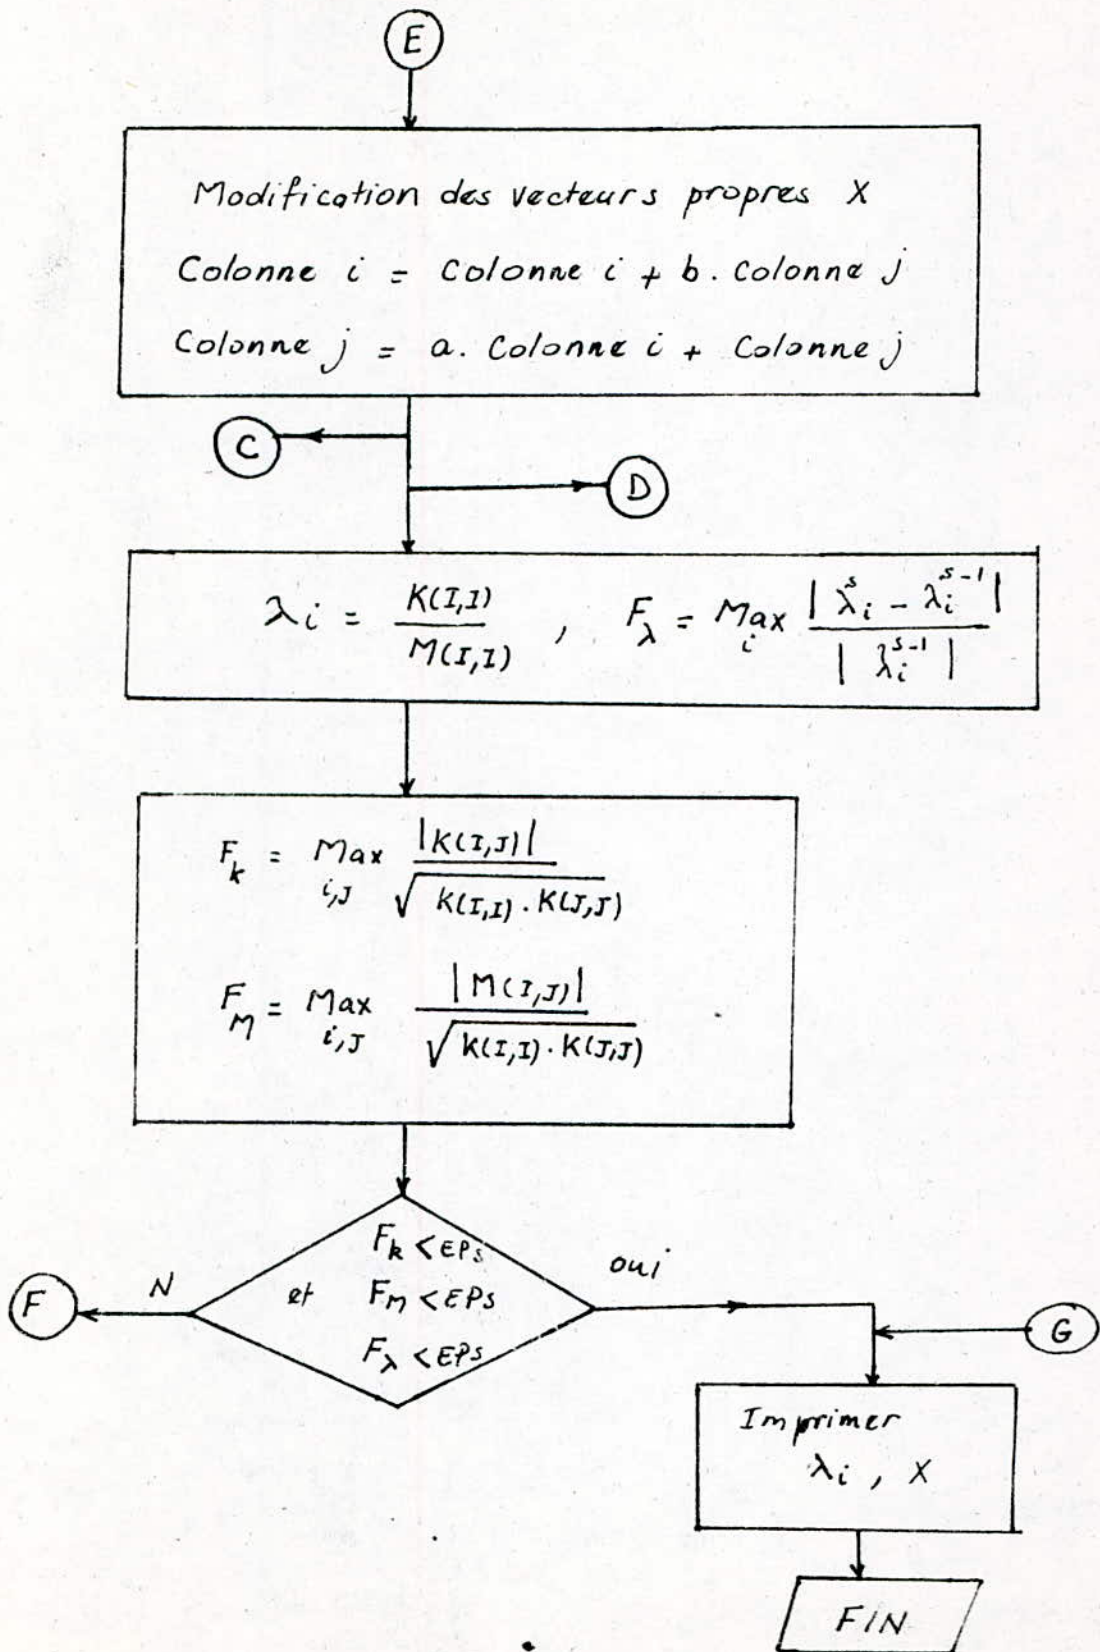 E
Modification des vecteurs propres X
Colonne i = Colonne i + b. Colonne j
Colonne j = a. Colonne i + Colonne j
C
D
λi = K(I,I) / M(I,I) , F_λ = Max_i |λ_i^s - λ_i^{s-1}| / |λ_i^{s-1}|
F_k = Max_{i,J} |K(I,J)| / √(K(I,I) . K(J,J))
F_M = Max_{i,J} |M(I,J)| / √(K(I,I) . K(J,J))
F_k < EPS
et F_M < EPS
F_λ < EPS
N
F
oui
G
Imprimer
λi , X
FIN